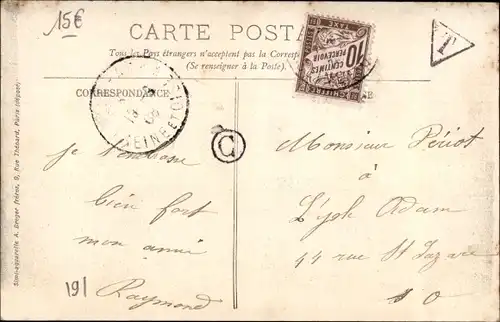 15€
CARTE POSTALE
Tous les Pays étrangers n'acceptent pas la Correspondance
(Se renseigner à la Poste).
10
CENTIMES
À PERCEVOIR
T
CORRESPONDANCE
SEINE ET OISE
C
je t'embrasse
bien fort
mon ami
Raymond
191
Monsieur Périot
à
L'Isle Adam
44 rue St Lazare
S O
Simili-aquarelle A. Breger Frères, 9, Rue Thénard, Paris